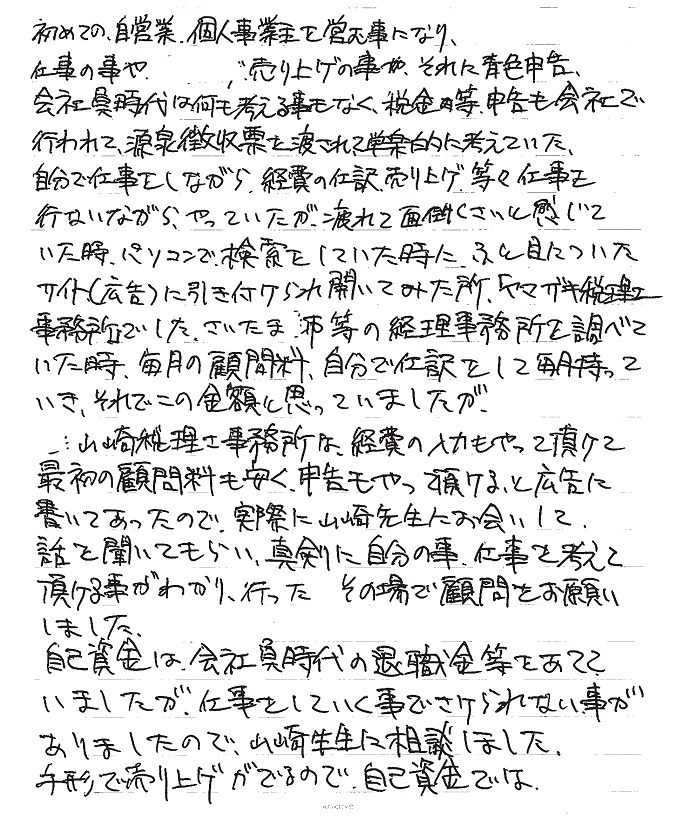 初めての、自営業、個人事業主を営む事になり、
仕事の事や、 売り上げの事や、それに青色申告、
会社員時代は何も考える事もなく、税金等、申告も会社で
行われて、源泉徴収票を渡されて単楽的に考えていた、
自分で仕事をしながら、経費の仕訳、売り上げ等々仕事を
行ないながら、やっていたが、疲れて面倒くさいと感じて
いた時、パソコンで、検索をしていた時に、ふと目についた
サイト(広告)に引き付けられ開いてみた所、ヤマザキ税理士
事務所でした。さいたま市等の経理事務所を調べて
いた時、毎月の顧問料、自分で仕訳をして毎月持って
いき、それでこの金額と思っていましたが、
山崎税理士事務所な、経費の入力もやって頂けて
最初の顧問料も安く、申告もやって頂ける、と広告に
書いてあったので、実際に山崎先生にお会いして、
話を聞いてもらい、真剣に自分の事、仕事を考えて
頂ける事がわかり、行った その場で顧問をお願い
しました、
自己資金は、会社員時代の退職金等をあてて
いましたが、仕事をしていく事でさけられない事が
ありましたので、山崎先生に相談しました、
手形で売り上げがでるので、自己資金では、